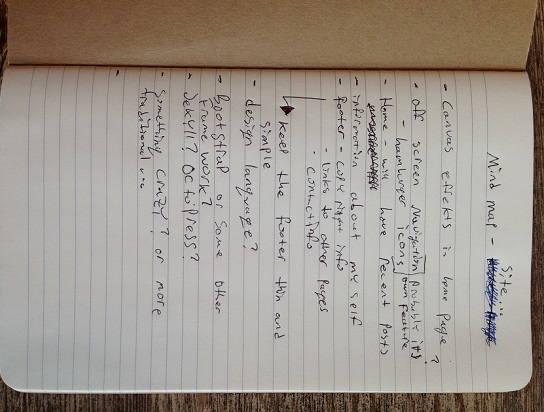 Mind map - Site
- Canvas effekts in home page?
- off screen Navigation probably its
- hamburger icons own feature
- Home - will have recent posts
- information about my self
- footer - copy right info
- links to other pages
- contact info
Keep the footer thin and
simple
- design language?
- Bootstrap or some other
frame work?
- Jekyll? Octopress?
- Something crazy? or more
traditional